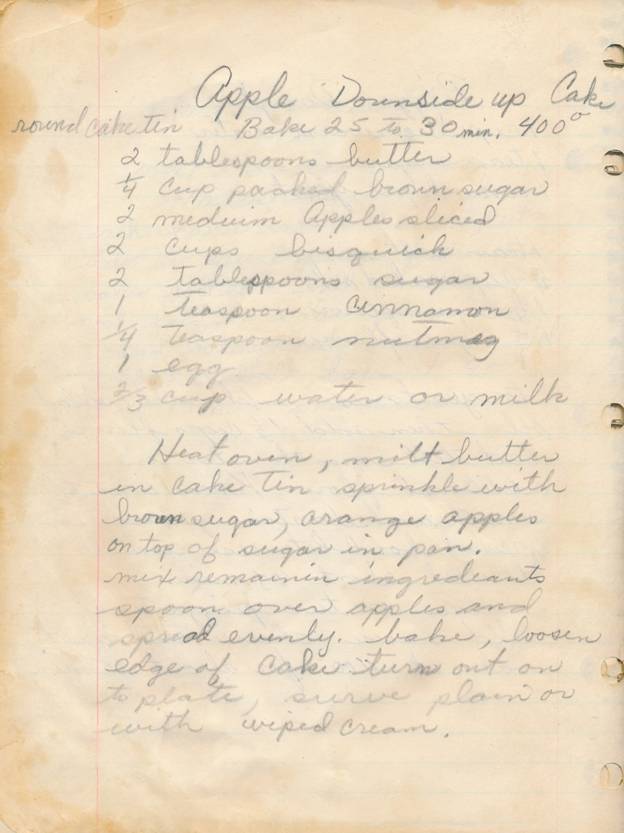 Apple Dounside up Cake
round cake tin Bake 25 to 30 min. 400°
2 tablespoons butter
1/4 cup packed brown sugar
2 meduim Apples sliced
2 cups bisquick
2 tablespoons sugar
1 teaspoon cinnamon
1/4 teaspoon nutmeg
1 egg
2/3 cup water or milk
Heat oven, milt butter
in cake tin sprinkle with
brown sugar, arange apples
on top of sugar in pan.
mix remainin ingredeants
spoon over apples and
spread evenly. bake, loosen
edge of cake turn out on
to plate, surve plain or
with wiped cream.